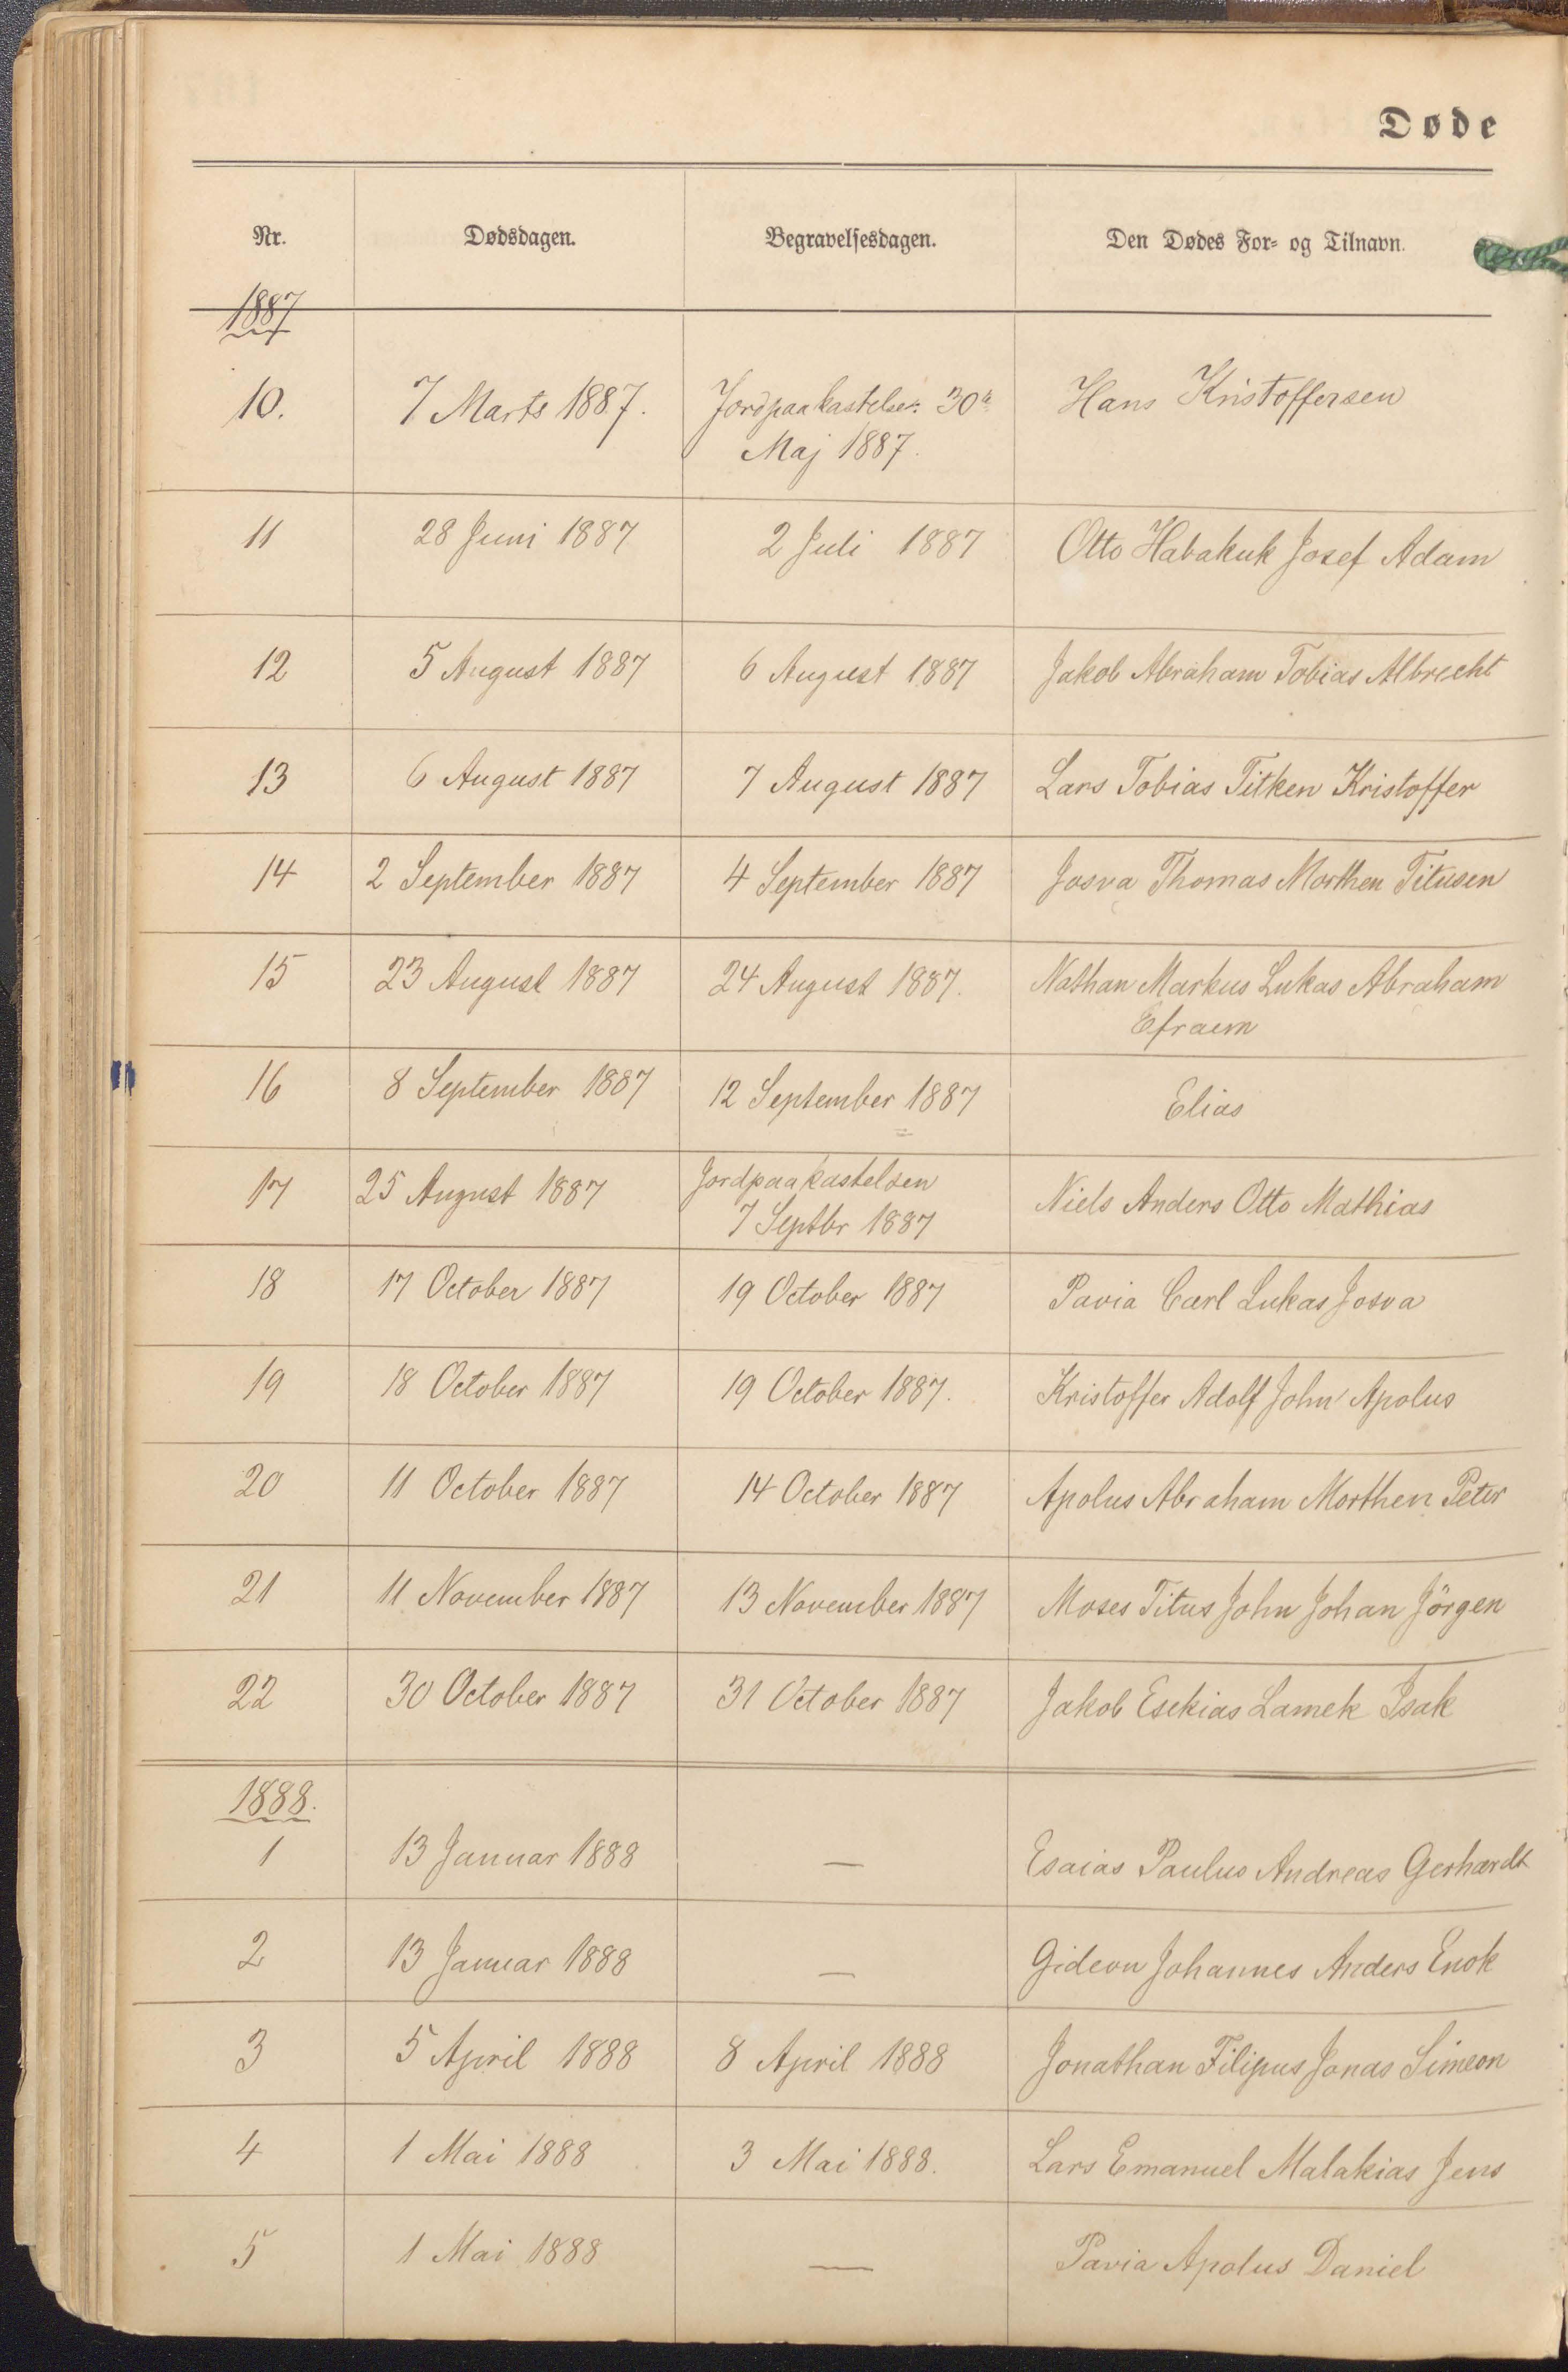 Døde
Nr. Dødsdagen. Begravelsesdagen. Den Dødes For- og Tilnavn.
1887
10. 7 Marts 1887. Jordpaakastelsen 30te Hans Kristoffersen
Maj 1887.
11 28 Juni 1887 2 Juli 1887 Otto Habakuk Josef Adam
12 5 August 1887 6 August 1887 Jakob Abraham Tobias Albrecht
13 6 August 1887 7 August 1887 Lars Tobias Titken Kristoffer
14 2 September 1887 4 September 1887 Josva Thomas Morthen Titusen
15 23 August 1887 24 August 1887. Nathan Markus Lukas Abraham
Efraem
16 8 September 1887 12 September 1887 Elias
17 25 August 1887 Jordpaakastelsen Niels Anders Otto Mathias
7 Septbr 1887
18 17 October 1887 19 October 1887 Pavia Carl Lukas Josva
19 18 October 1887 19 October 1887. Kristoffer Adolf John Apolus
20 11 October 1887 14 October 1887 Apolus Abraham Morthen Peter
21 11 November 1887 13 November 1887 Moses Titus John Johan Jörgen
22 30 October 1887 31 October 1887 Jakob Esekias Lamek Isak
1888.
1 13 Januar 1888 — Esaias Paulus Andreas Gerhardt
2 13 Januar 1888 — Gideon Johannes Anders Enok
3 5 April 1888 8 April 1888 Jonathan Filipus Jonas Simeon
4 1 Mai 1888 3 Mai 1888. Lars Emanuel Malakias Jens
5 1 Mai 1888 — Pavia Apolus Daniel